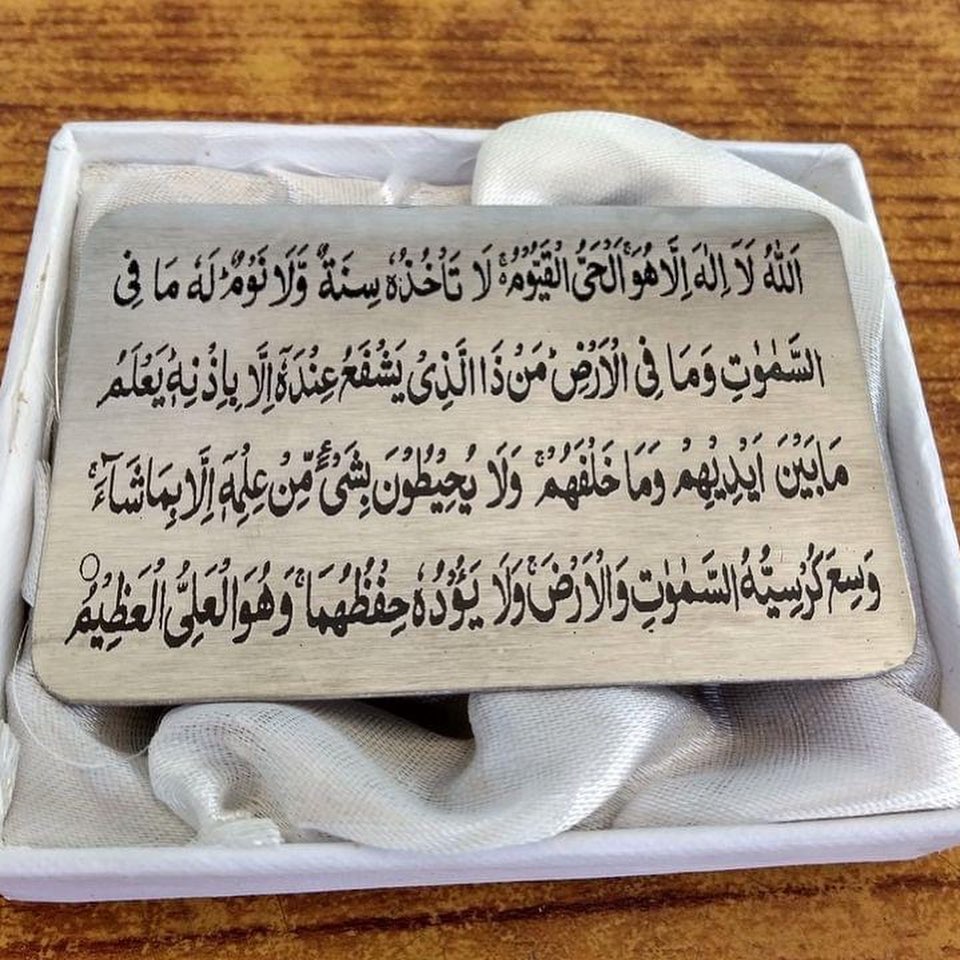 اَللّٰهُ لَآ اِلٰهَ اِلَّا هُوَۚ اَلْحَىُّ الْقَيُّوْمُ ۚ لَا تَاْخُذُهٗ سِنَةٌ وَّلَا نَوْمٌ ؕ لَهٗ مَا فِى
السَّمٰوٰتِ وَمَا فِى الْاَرْضِ ؕ مَنْ ذَا الَّذِىْ يَشْفَعُ عِنْدَهٗٓ اِلَّا بِاِذْنِهٖ ؕ يَعْلَمُ
مَا بَيْنَ اَيْدِيْهِمْ وَمَا خَلْفَهُمْ ۚ وَلَا يُحِيْطُوْنَ بِشَىْءٍ مِّنْ عِلْمِهٖٓ اِلَّا بِمَا شَآءَ ۚ
وَسِعَ كُرْسِيُّهُ السَّمٰوٰتِ وَالْاَرْضَ ۚ وَلَا يَـُٔوْدُهٗ حِفْظُهُمَا ۚ وَهُوَ الْعَلِىُّ الْعَظِيْمُ ۝